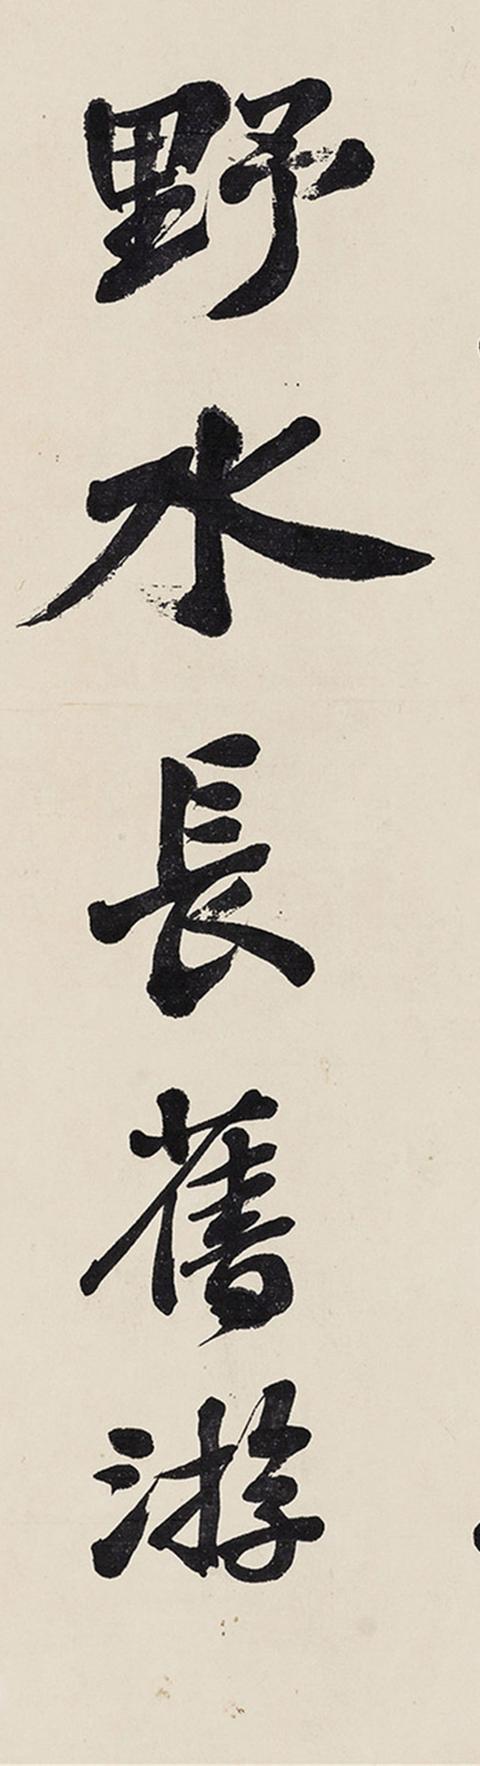 野水長舊游